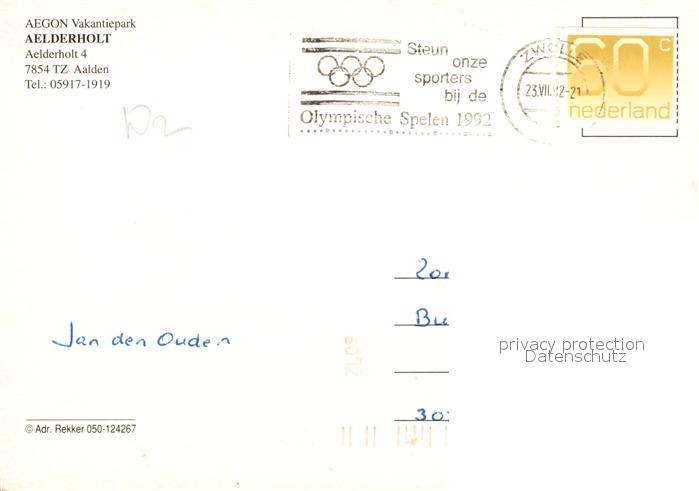 AEGON Vakantiepark
AELDERHOLT
Aelderholt 4
7854 TZ Aalden
Tel.: 05917-1919
Steun
onze
sporters
bij de
Olympische Spelen 1992
ZWOLLE
23.VII.92-21
60 c
nederland
Jan den Ouden
Bu
30
privacy protection
Datenschutz
© Adr. Rekker 050-124267